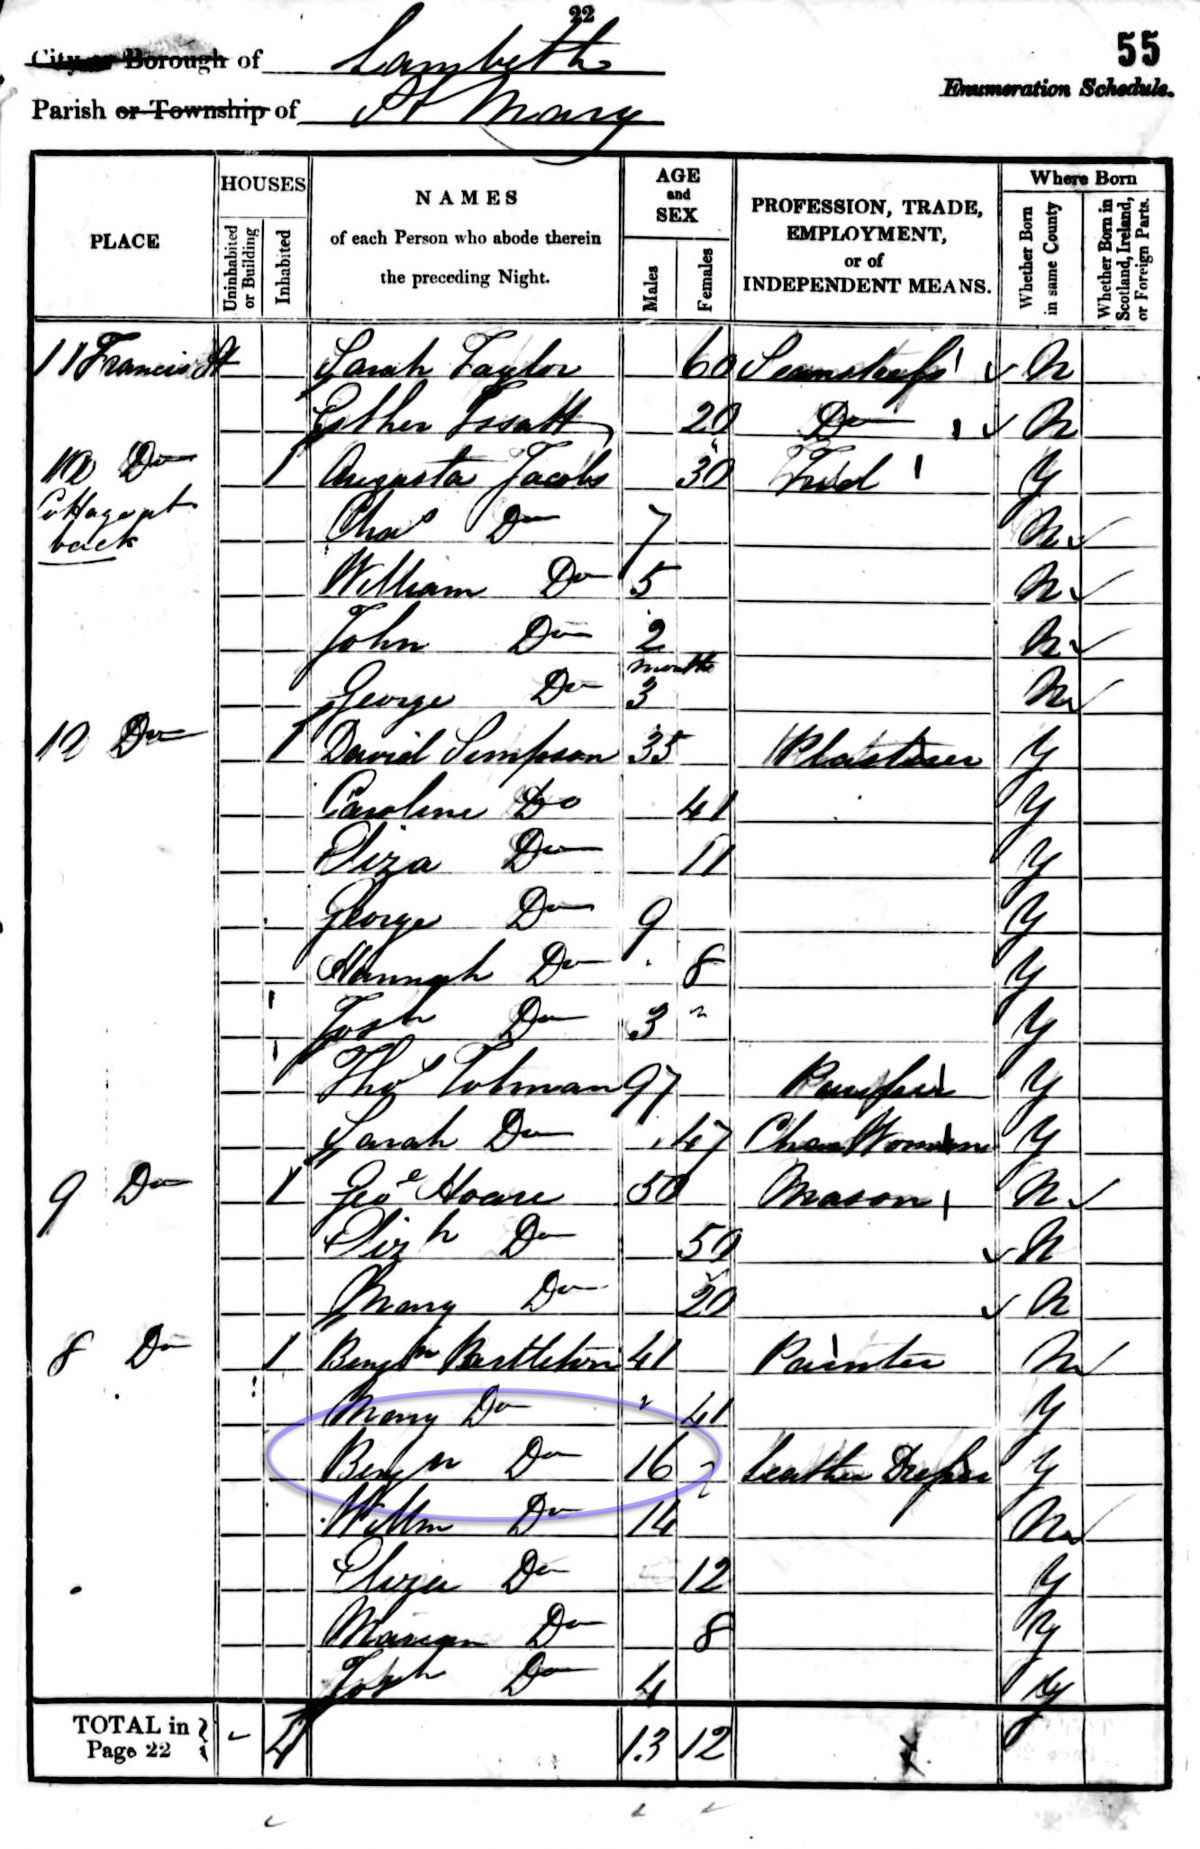 22
55
City or Borough of Lambeth
Enumeration Schedule.
Parish or Township of St Mary
PLACE
HOUSES
Uninhabited or Building
Inhabited
NAMES
of each Person who abode therein
the preceding Night.
AGE
and
SEX
Males
Females
PROFESSION, TRADE,
EMPLOYMENT,
or of
INDEPENDENT MEANS.
Where Born
Whether Born in same County
Whether Born in Scotland, Ireland, or Foreign Parts.
11 Francis St Sarah Taylor 60 Seamstress N
Esther 20 Do N
Do 1 Augusta Jacobs 30 Ind Y
Cottage at
back
Chas Do 7 N
William Do 5 N
John Do 2 N
months
George Do 3 N
12 Do 1 David Simpson 35 Plasterer Y
Caroline Do 41 Y
Eliza Do 11 Y
George Do 9 Y
Hannah Do 8 Y
Josh Do 3 Y
Thos Tolman 97 Y
Sarah Do 47 Char Woman Y
9 Do 1 Geoe Hoare 50 Mason N
Elizh Do 50 N
Mary Do 20 N
8 Do 1 Benjn Bartleton 41 Painter N
Mary Do 41 Y
Benjn Do 16 Leather Dresser Y
Willm Do 14 N
Eliza Do 12 Y
Marian Do 8 Y
Josh Do 4 Y
TOTAL in
Page 22 - 4 13 12